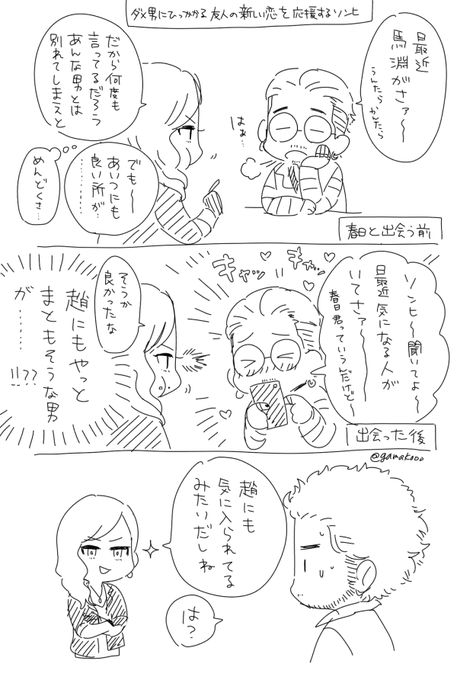 ダメ男にひっかかる友人の新しい恋を応援するソンヒ
最近
馬淵がさァ〜
うんたら かんたら
はぁ…
だから何度も
言ってるだろう
あんな男とは
別れてしまえと
でも〜
あいつにも
良い所が
…………
めんどくさ…
春日と出会う前
ソンヒ〜聞いてよ〜
最近気になる人が
いてさァ〜
春日君っていうんだけど〜
キャッ
キャッ
そうか
良かったな
趙にもやっと
まともそうな男
が………!!??
出会った後
@gamakooo
趙にも
気に入られてる
みたいだしね
は?